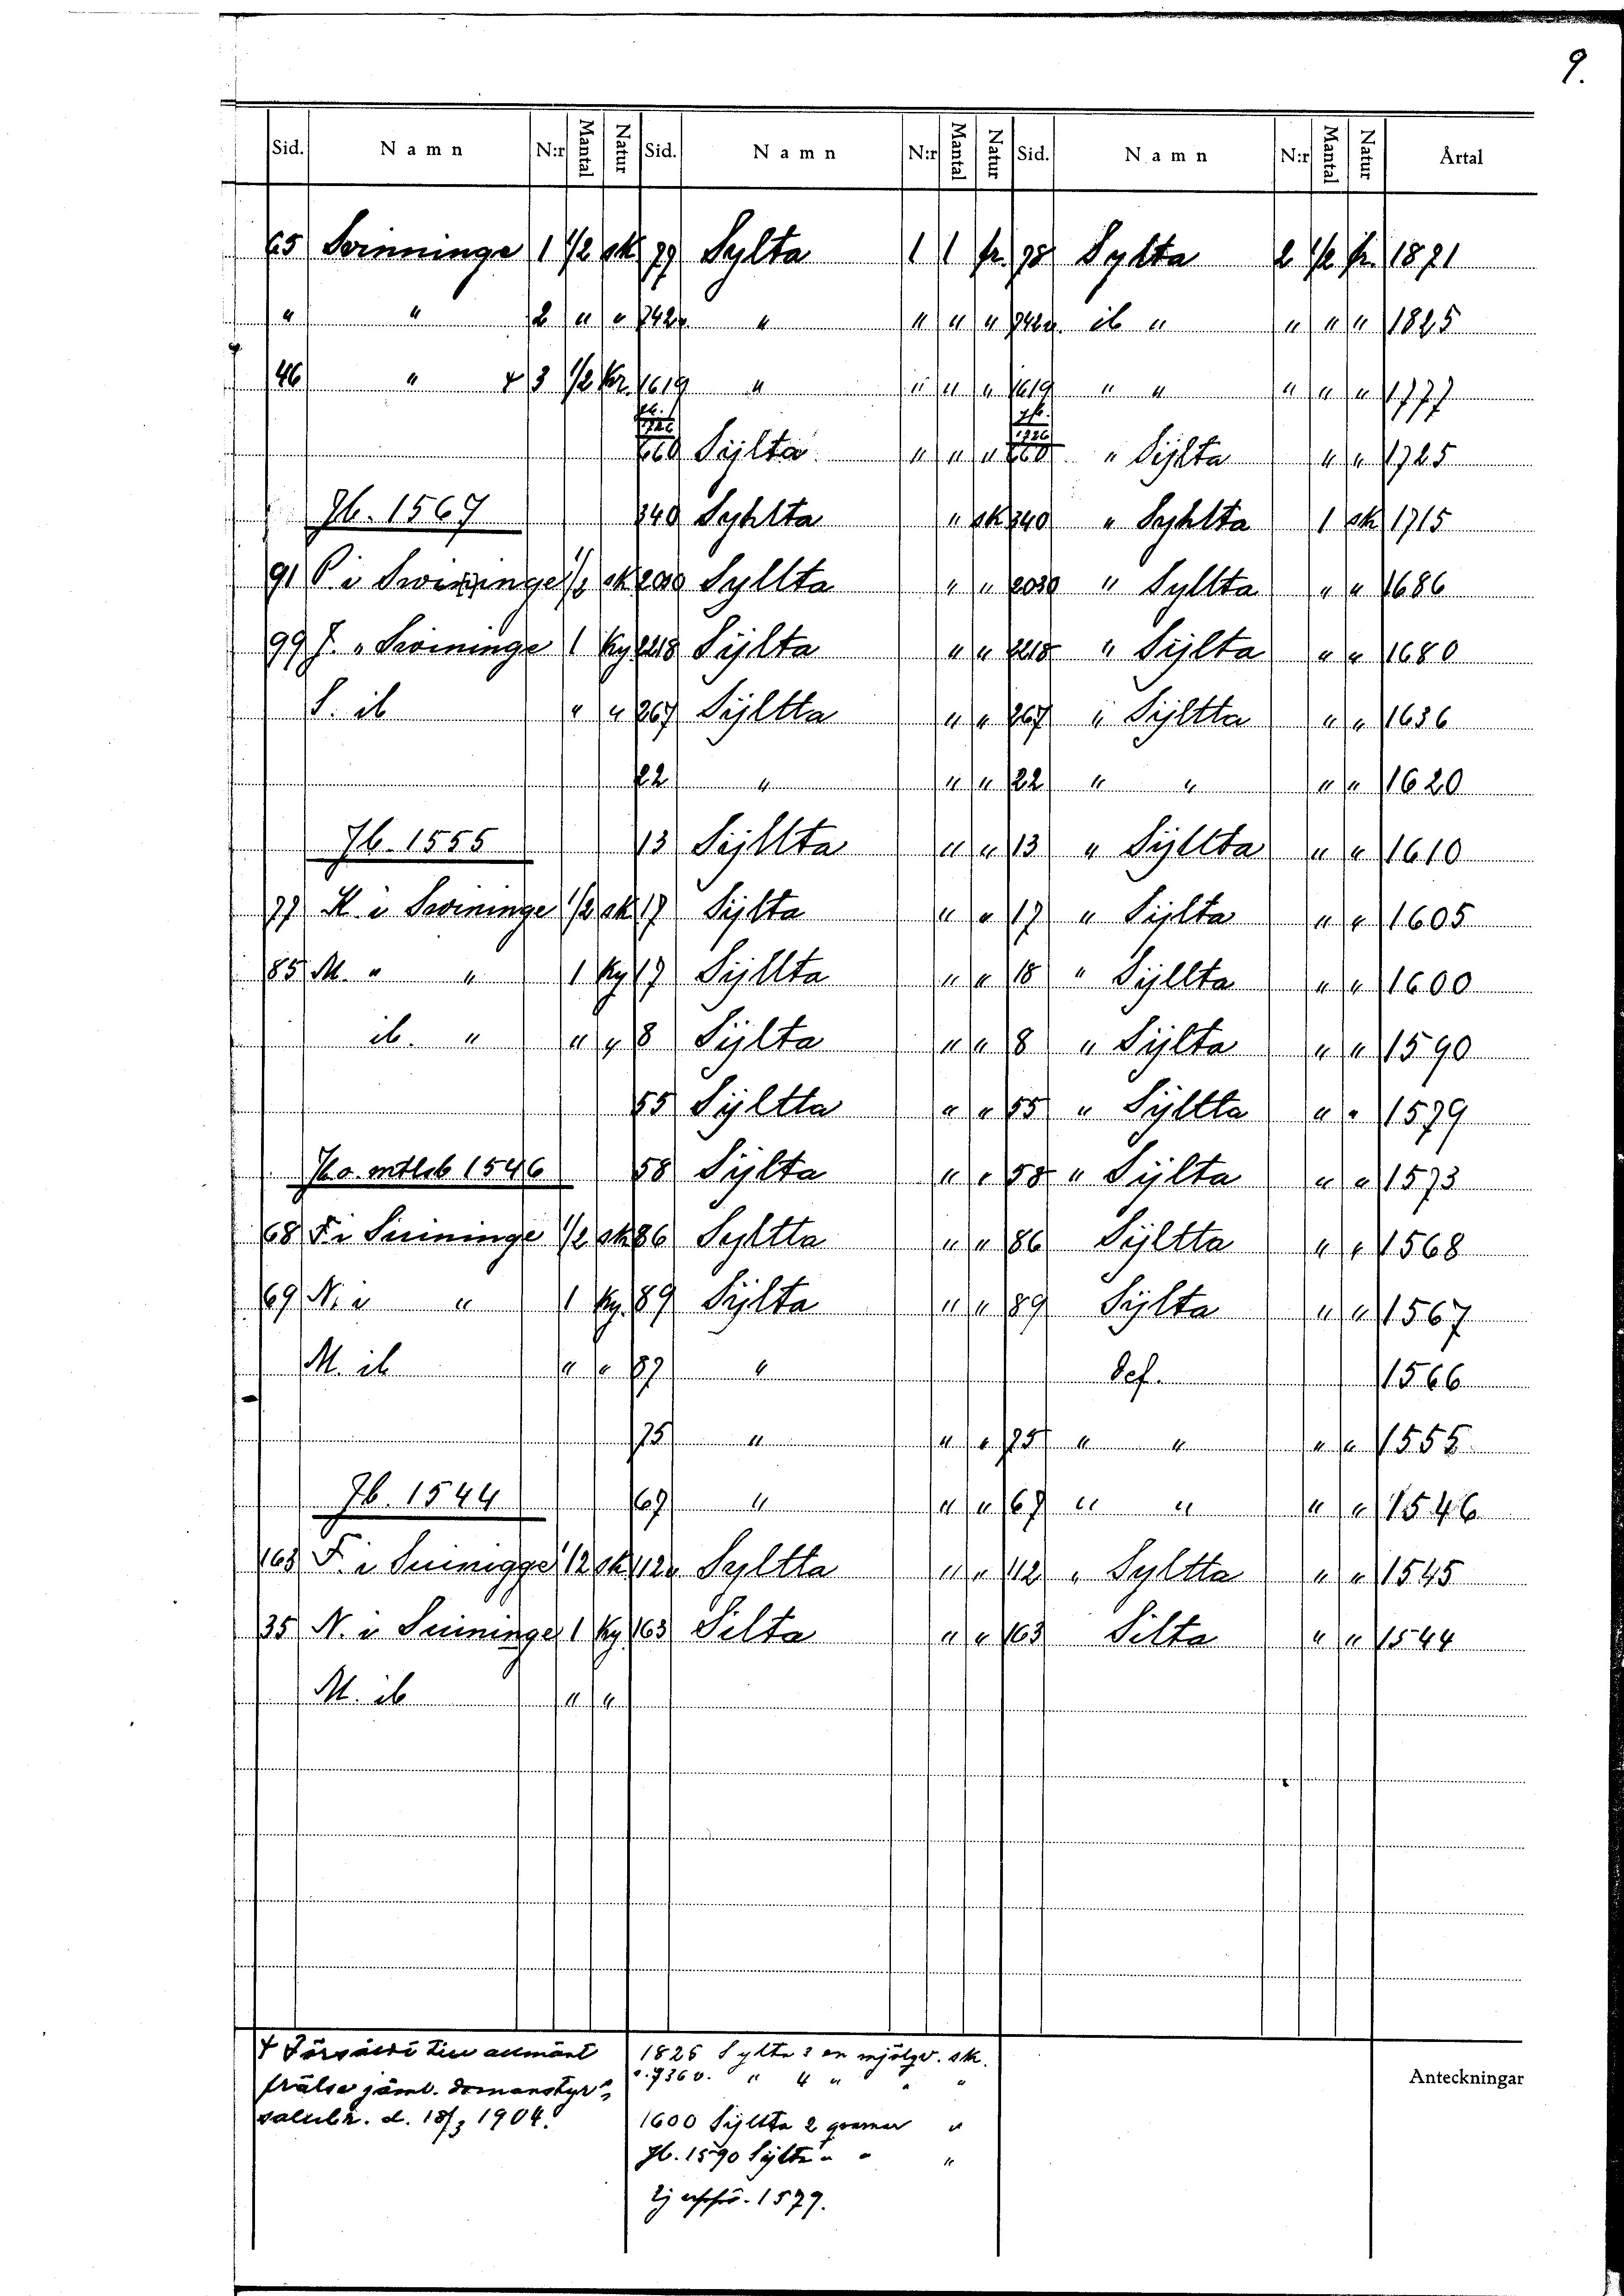 9.
Sid. Namn N:r Mantal Natur Sid. Namn N:r Mantal Natur Sid. Namn N:r Mantal Natur Årtal
65 Svinninge 1 1/2 sk 77 Sylta 1 1 fr. 78 Sylta 2 1/2 fr. 1871
" " 2 " " 742v. " " " " 742v. ib " " " " 1825
46 " + 3 1/2 Kr. 1619 " " " " 1619 " " " " " 1777
Jb. 1726 Jb. 1726
660 Sÿlta " " " 660 " Sÿlta " " 1725
Jb. 1567 340 Syhlta " sk 340 " Syhlta 1 sk 1715
91 P i Swininge 1/2 sk 2030 Syllta " " 2030 " Syllta " " 1686
99 J. " Swininge 1 Ky 2218 Sÿlta " " 2218 " Sÿlta " " 1680
S. ib " " 267 Sÿltta " " 267 " Sÿltta " " 1636
22 " " " 22 " " " " 1620
Jb. 1555 13 Sÿllta " " 13 " Sÿllta " " 1610
77 K i Swininge 1/2 sk 17 Sÿlta " " 17 " Sÿlta " " 1605
85 M. " " 1 Ky 17 Sÿllta " " 18 " Sÿllta " " 1600
ib. " " " 8 Sÿlta " " 8 " Sÿlta " " 1590
55 Sÿltta " " 55 " Sÿltta " " 1579
Jb o. mtlsb 1546 58 Sÿlta " " 58 " Sÿlta " " 1573
68 F i Siuininge 1/2 sk 86 Syltta " " 86 Sÿltta " " 1568
69 N. i " 1 Ky. 89 Sÿlta " " 89 Sÿlta " " 1567
M. ib " " 87 " Def. 1566
75 " " " 75 " " " " 1555
Jb. 1544 67 " " " 67 " " " " 1546
163 F. i Suinigge 1/2 sk 112v Syltta " " 112 " Syltta " " 1545
35 N. i Suininge 1 Ky. 163 Silta " " 163 Silta " " 1544
M. ib " "
+ Försåld till allmänt
frälse jäml. domänstyr:s
salubr. d. 18/3 1904.
1825 Sylta 3 en mjölqv. sk.
s. 736 v. " 4 " " "
1600 Sÿllta 2 qvarnar "
Jb. 1590 Sÿlta " " "
Ej uppför. 1579.
Anteckningar